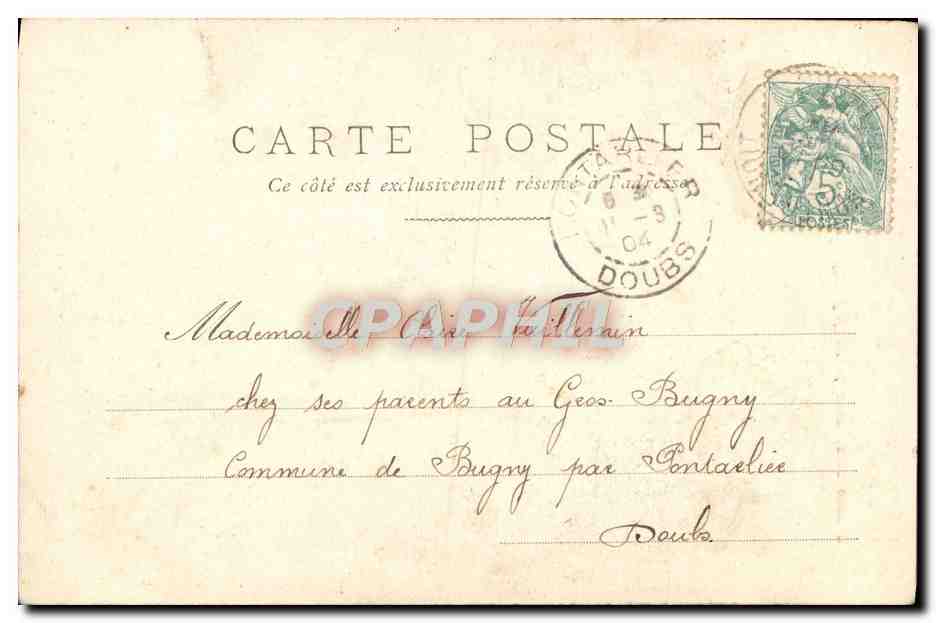 CARTE POSTALE
Ce côté est exclusivement réservé à l'adresse
PONTARLIER
6
11 -3
04
DOUBS
5c
POSTES
CPAPHIL
Mademoiselle Vuillemin
chez ses parents au Gros-Bugny
Commune de Bugny par Pontarlier
Doubs